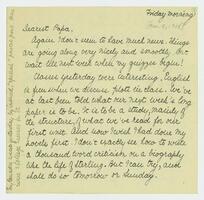 Friday morning
Dearest Papa,
Again I don't seem to have much news. Things
are going along very nicely and smoothly. But
wait till next week when my quizzes begin!
Classes yesterday were interesting. English
is fun when we discuss plot in class. We've
at last been told what our next week's long
paper is to be. It is to be a study, mainly of
the structure, of what we've read for our
first unit. And now I wish I had done my
novels first. I don't exactly see how to write
a thousand word criticism on a biography
like the life of Sterling. But I can try, and
shall do so tomorrow or Sunday.